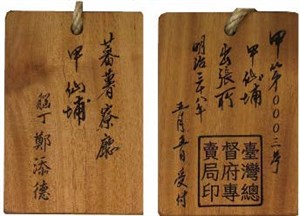 蕃薯寮廳
甲仙埔
隘丁 鄭添德
甲第0003号
甲仙埔
出張所
明治三十八年
五月五日受付
臺灣總
督府專
賣局印